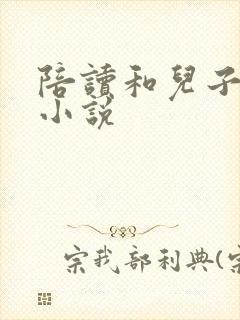 陪讀和兒子
小說
宗我部利典(宗